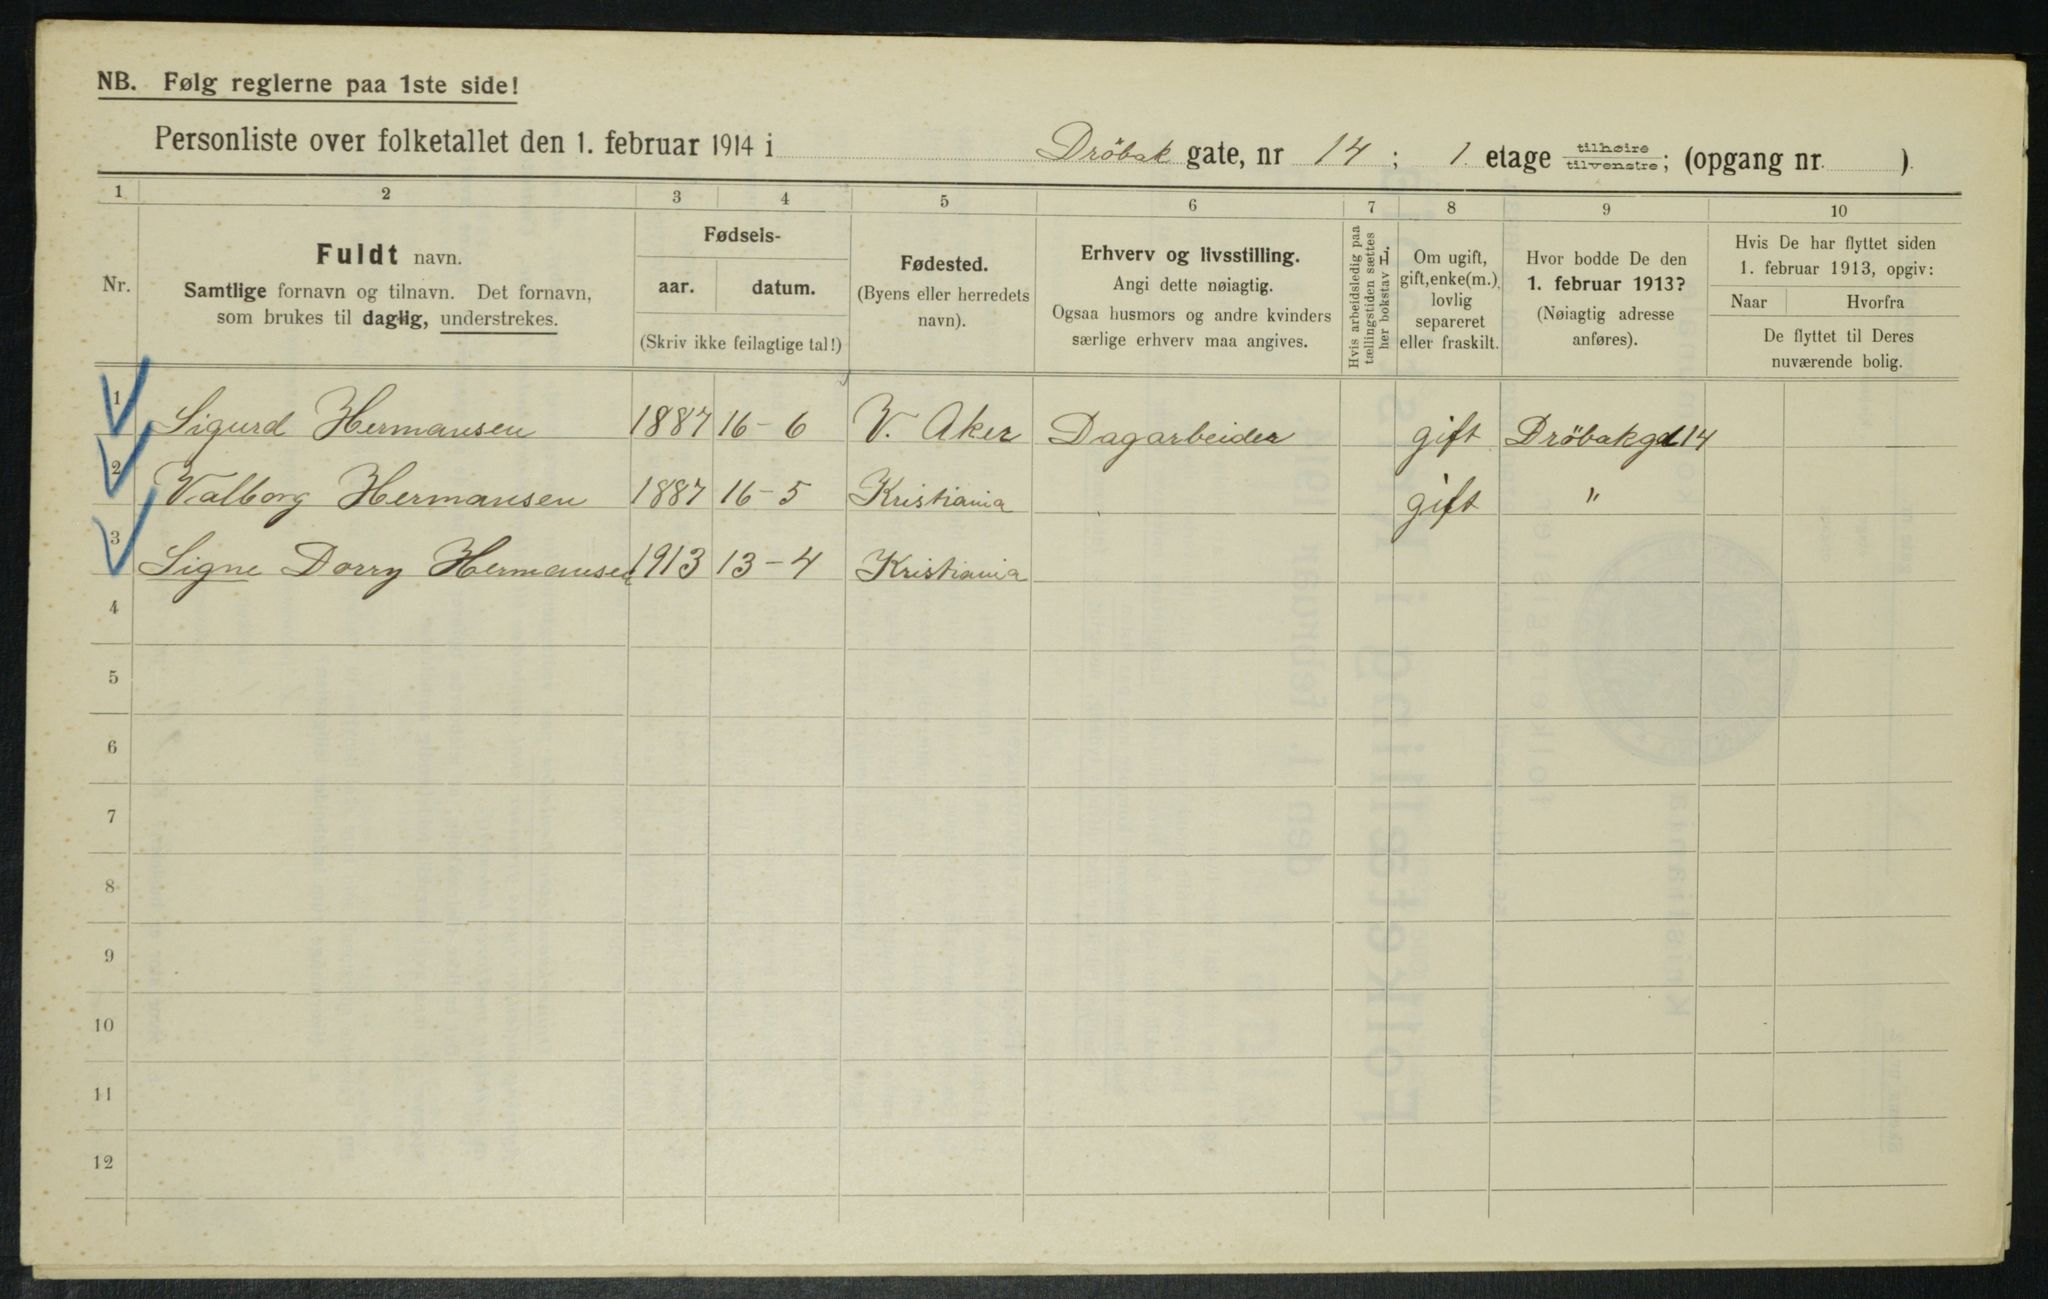 NB. Følg reglerne paa 1ste side!
Personliste over folketallet den 1. februar 1914 i Dröbak gate, nr 14; 1. etage tilhøire / tilvenstre; (opgang nr. ).
1 2 3 4 5 6 7 8 9 10
Nr.
Fuldt navn.
Samtlige fornavn og tilnavn. Det fornavn,
som brukes til daglig, understrekes.
Fødsels-
aar. datum.
(Skriv ikke feilagtige tal!)
Fødested.
(Byens eller herredets
navn).
Erhverv og livsstilling.
Angi dette nøiagtig.
Ogsaa husmors og andre kvinders
særlige erhverv maa angives.
Hvis arbeidsledig paa
tællingstiden sættes
her bokstav L.
Om ugift,
gift, enke(m.),
lovlig
separeret
eller fraskilt.
Hvor bodde De den
1. februar 1913?
(Nøiagtig adresse
anføres).
Hvis De har flyttet siden
1. februar 1913, opgiv:
Naar Hvorfra
De flyttet til Deres
nuværende bolig.
1 Sigurd Hermansen 1887 16-6 V. Aker Dagarbeider gift Dröbakgd 14
2 Valborg Hermansen 1887 16-5 Kristiania gift "
3 Signe Dorry Hermansen 1913 13-4 Kristiania
4
5
6
7
8
9
10
11
12